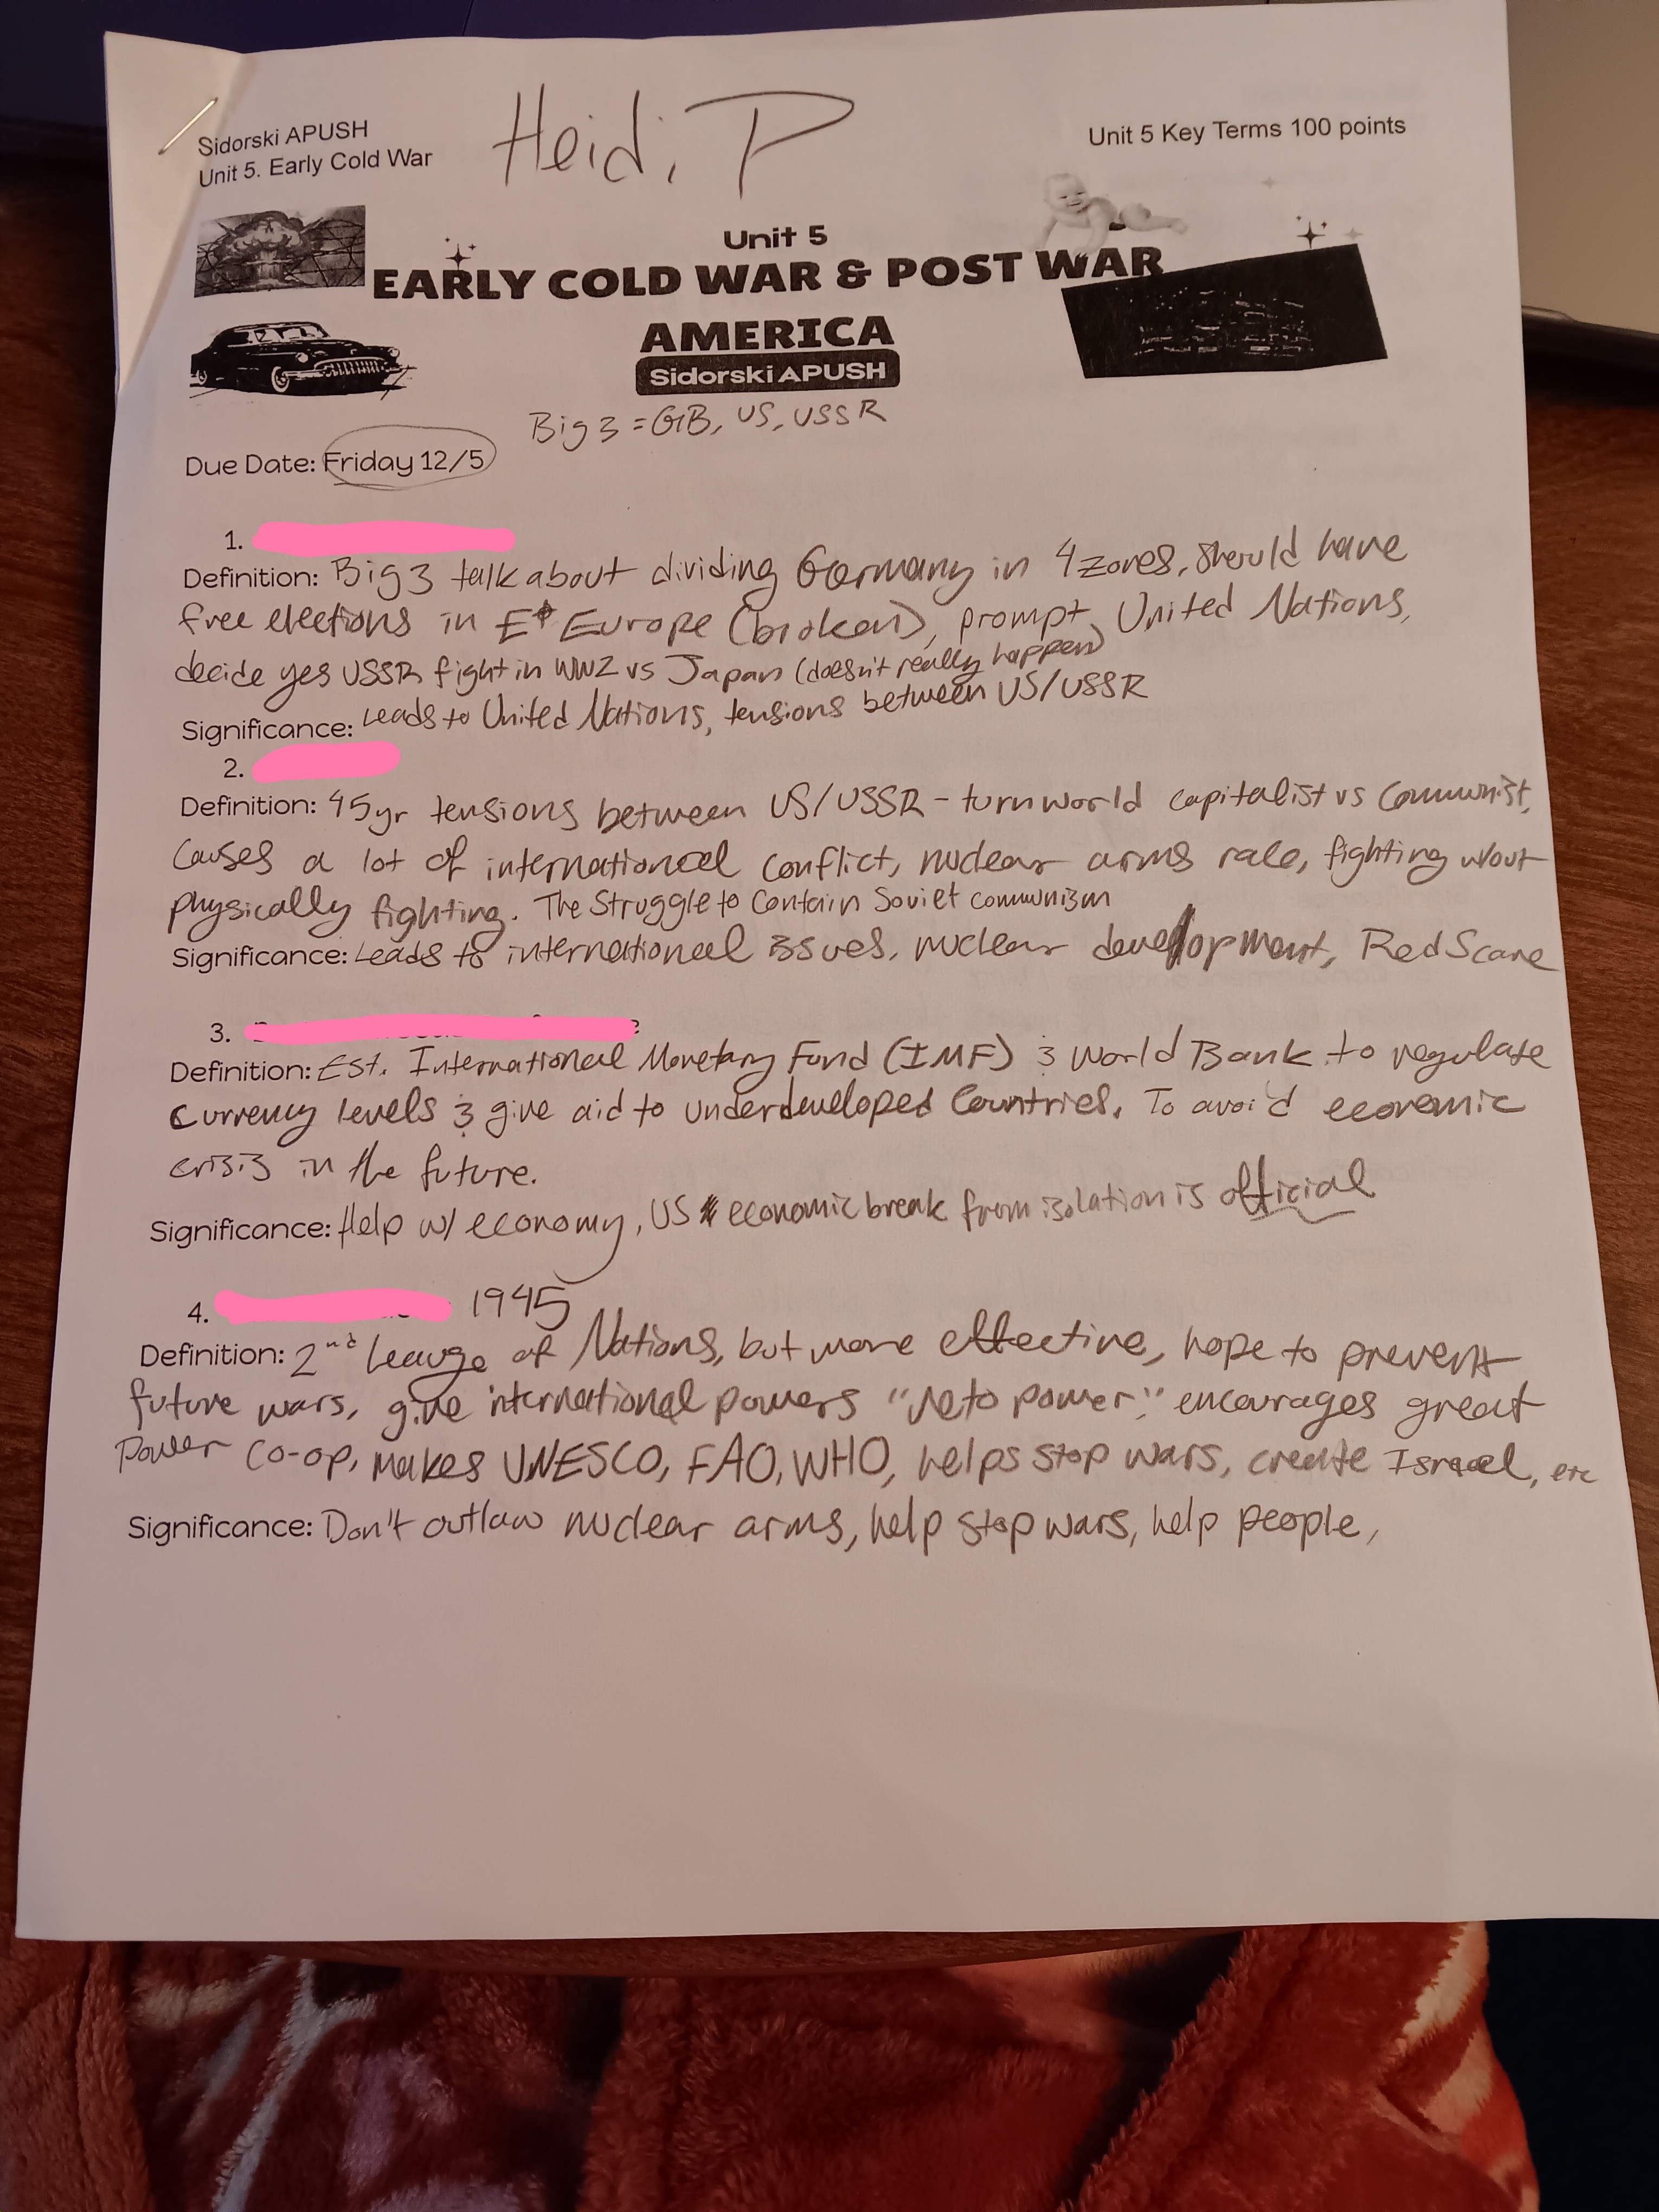 Sidorski APUSH
Unit 5. Early Cold War
Heidi P
Unit 5 Key Terms 100 points
Unit 5
EARLY COLD WAR & POST WAR
AMERICA
Sidorski APUSH
Big 3 = GB, US, USSR
Due Date: Friday 12/5
1.
Definition: Big 3 talk about dividing Germany in 4 zones, should have
free elections in E Europe (broken), prompt United Nations,
decide yes USSR fight in WW2 vs Japan (doesn't really happen)
Significance: Leads to United Nations, tensions between US/USSR
2.
Definition: 45yr tensions between US/USSR - turn world capitalist vs communist,
causes a lot of international conflict, nuclear arms race, fighting w/out
physically fighting. The Struggle to Contain Soviet communism
Significance: Leads to international issues, nuclear development, Red Scare
3.
Definition: Est. International Monetary Fund (IMF) & World Bank to regulate
currency levels & give aid to underdeveloped Countries. To avoid economic
crisis in the future.
Significance: Help w/ economy, US economic break from isolation is official
4. 1945
Definition: 2nd Leauge of Nations, but more effective, hope to prevent
future wars, give international powers "veto power," encourages great
power co-op, makes UNESCO, FAO, WHO, helps stop wars, create Israel, etc
Significance: Don't outlaw nuclear arms, help stop wars, help people,